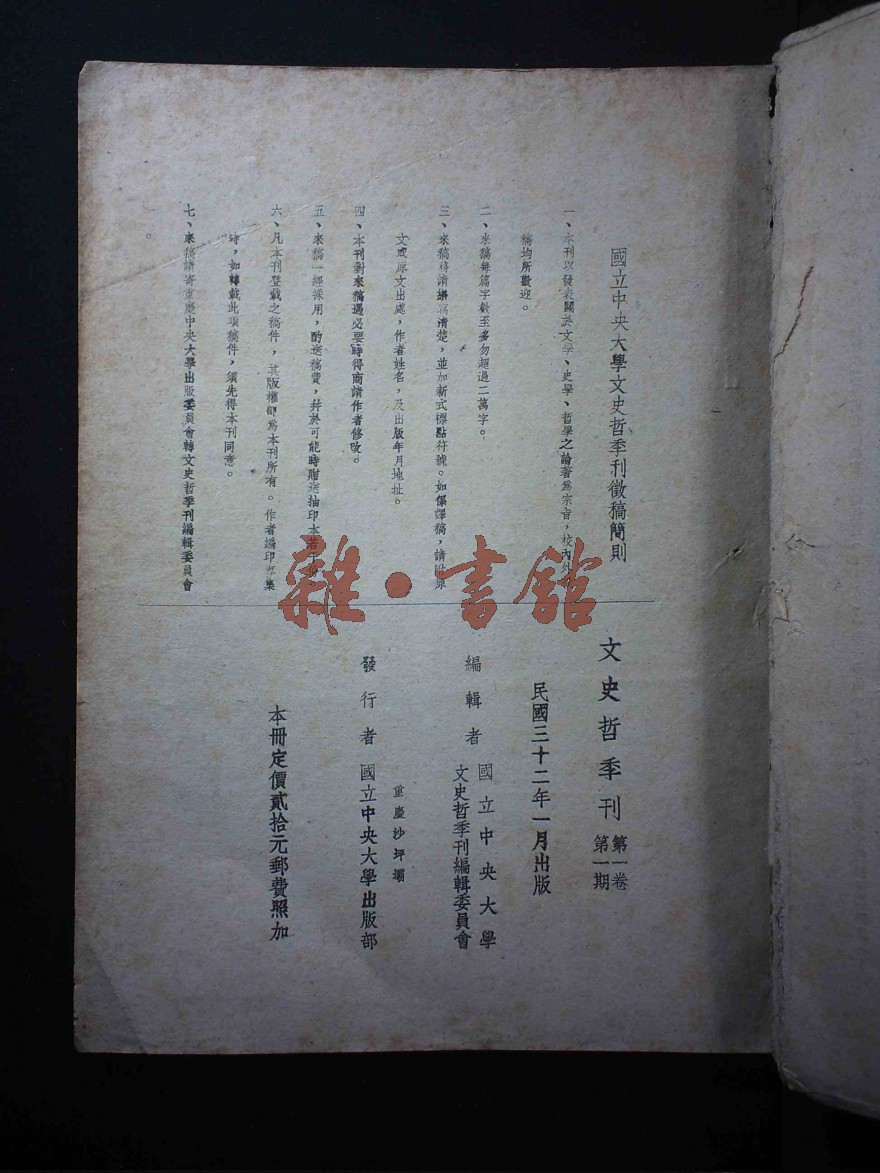 國立中央大學文史哲季刊徵稿簡則
一、本刊以發表關於文學、史學、哲學之論著為宗旨，校內外
稿均所歡迎。
二、來稿每篇字數至多勿超過二萬字。
三、來稿務請繕寫清楚，並加新式標點符號。如係譯稿，請附原
文或原文出處，作者姓名，及出版年月地址。
四、本刊對來稿遇必要時得商請作者修改。
五、來稿一經採用，酌送稿費，并於可能時贈送抽印本若干份
六、凡本刊登載之稿件，其版權即為本刊所有。作者編印專集
時，如轉載此項稿件，須先得本刊同意。
七、來稿請寄重慶中央大學出版委員會轉文史哲季刊編輯委員會
。
文史哲季刊
第一卷
第一期
民國三十二年一月出版
編輯者
國立中央大學
文史哲季刊編輯委員會
重慶沙坪壩
發行者 國立中央大學出版部
本冊定價貳拾元郵費照加
雜·書館